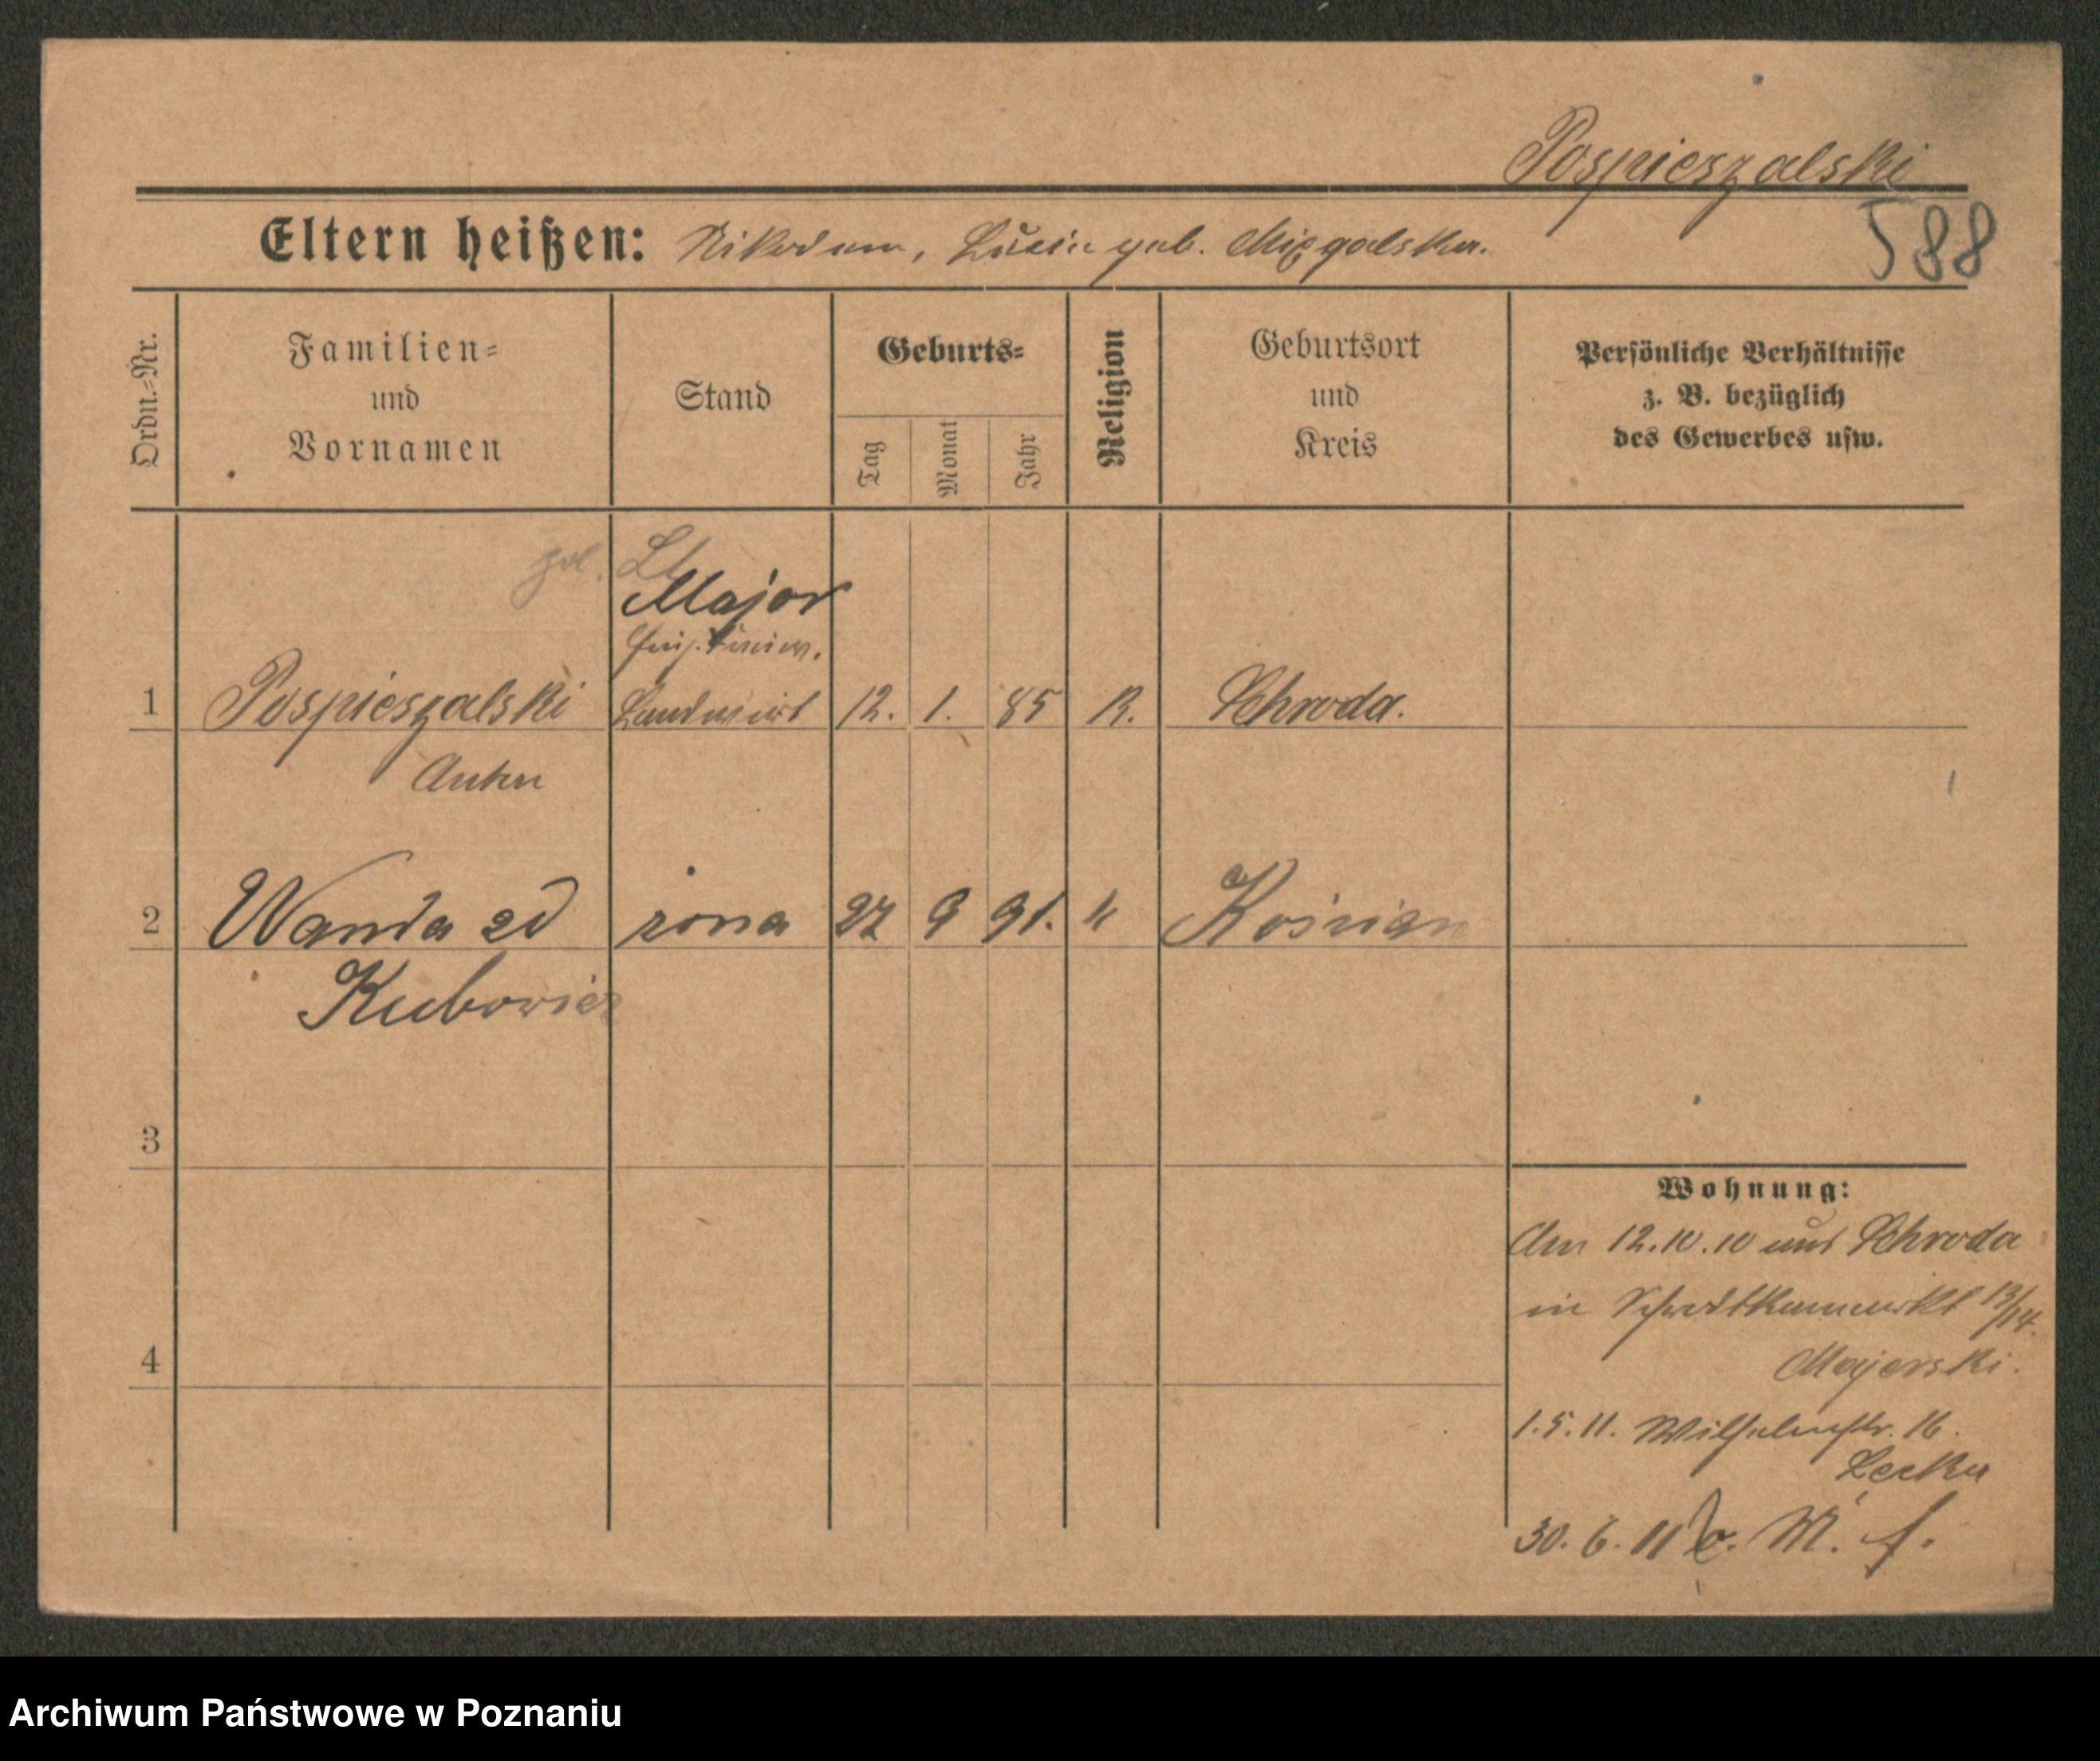 Pospieszalski
588
Eltern heißen: Nikodem, Luzie geb. Mizgalska.
Ordn.-Nr.
Familien-
und
Vornamen
Stand
Geburts-
Tag
Monat
Jahr
Religion
Geburtsort
und
Kreis
Persönliche Verhältnisse
z. B. bezüglich
des Gewerbes usw.
Major
1 Pospieszalski Landwirt 12. 1. 85 K. Schroda.
Anton
2 Wanda zd żona 27 9 91. k Kościan
Kubowicz
3
4
Wohnung:
Am 12.10.10 aus Schroda
in 13/14.
Majerski.
1.5.11. Wilhelmstr. 16.
30.6.11 v. M. f.
Archiwum Państwowe w Poznaniu